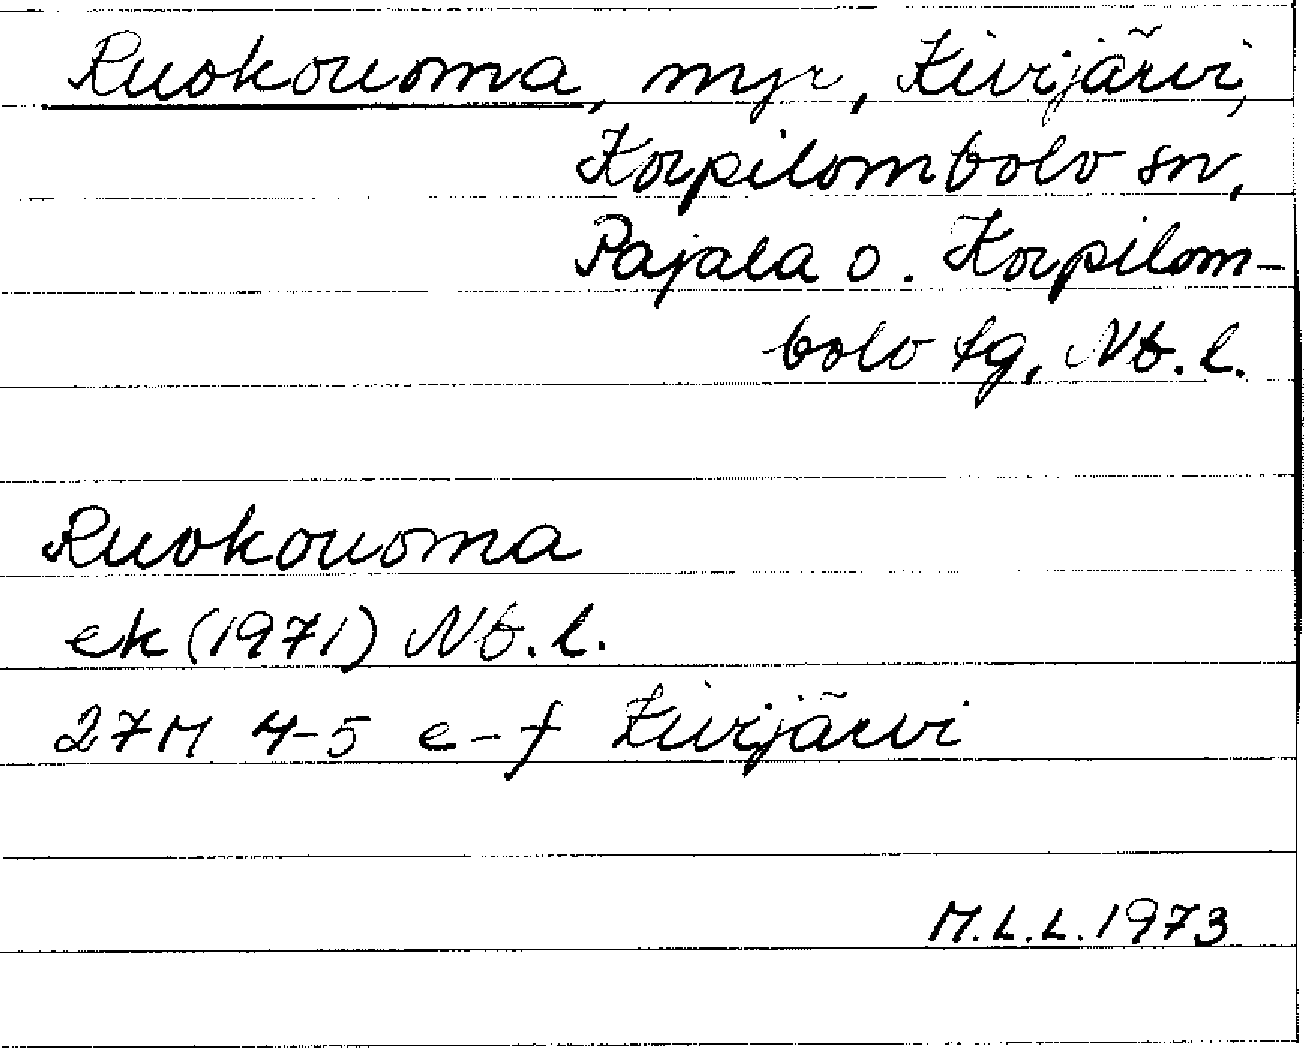 Ruokovoma, myr, Kivijärvi,
Korpilombolo sn,
Pajala o. Korpilom-
bolo tg, Nb. l.
Ruokovoma
ek (1971) Nb. l.
27M 4-5 e-f Kivijärvi
M.L.L. 1973